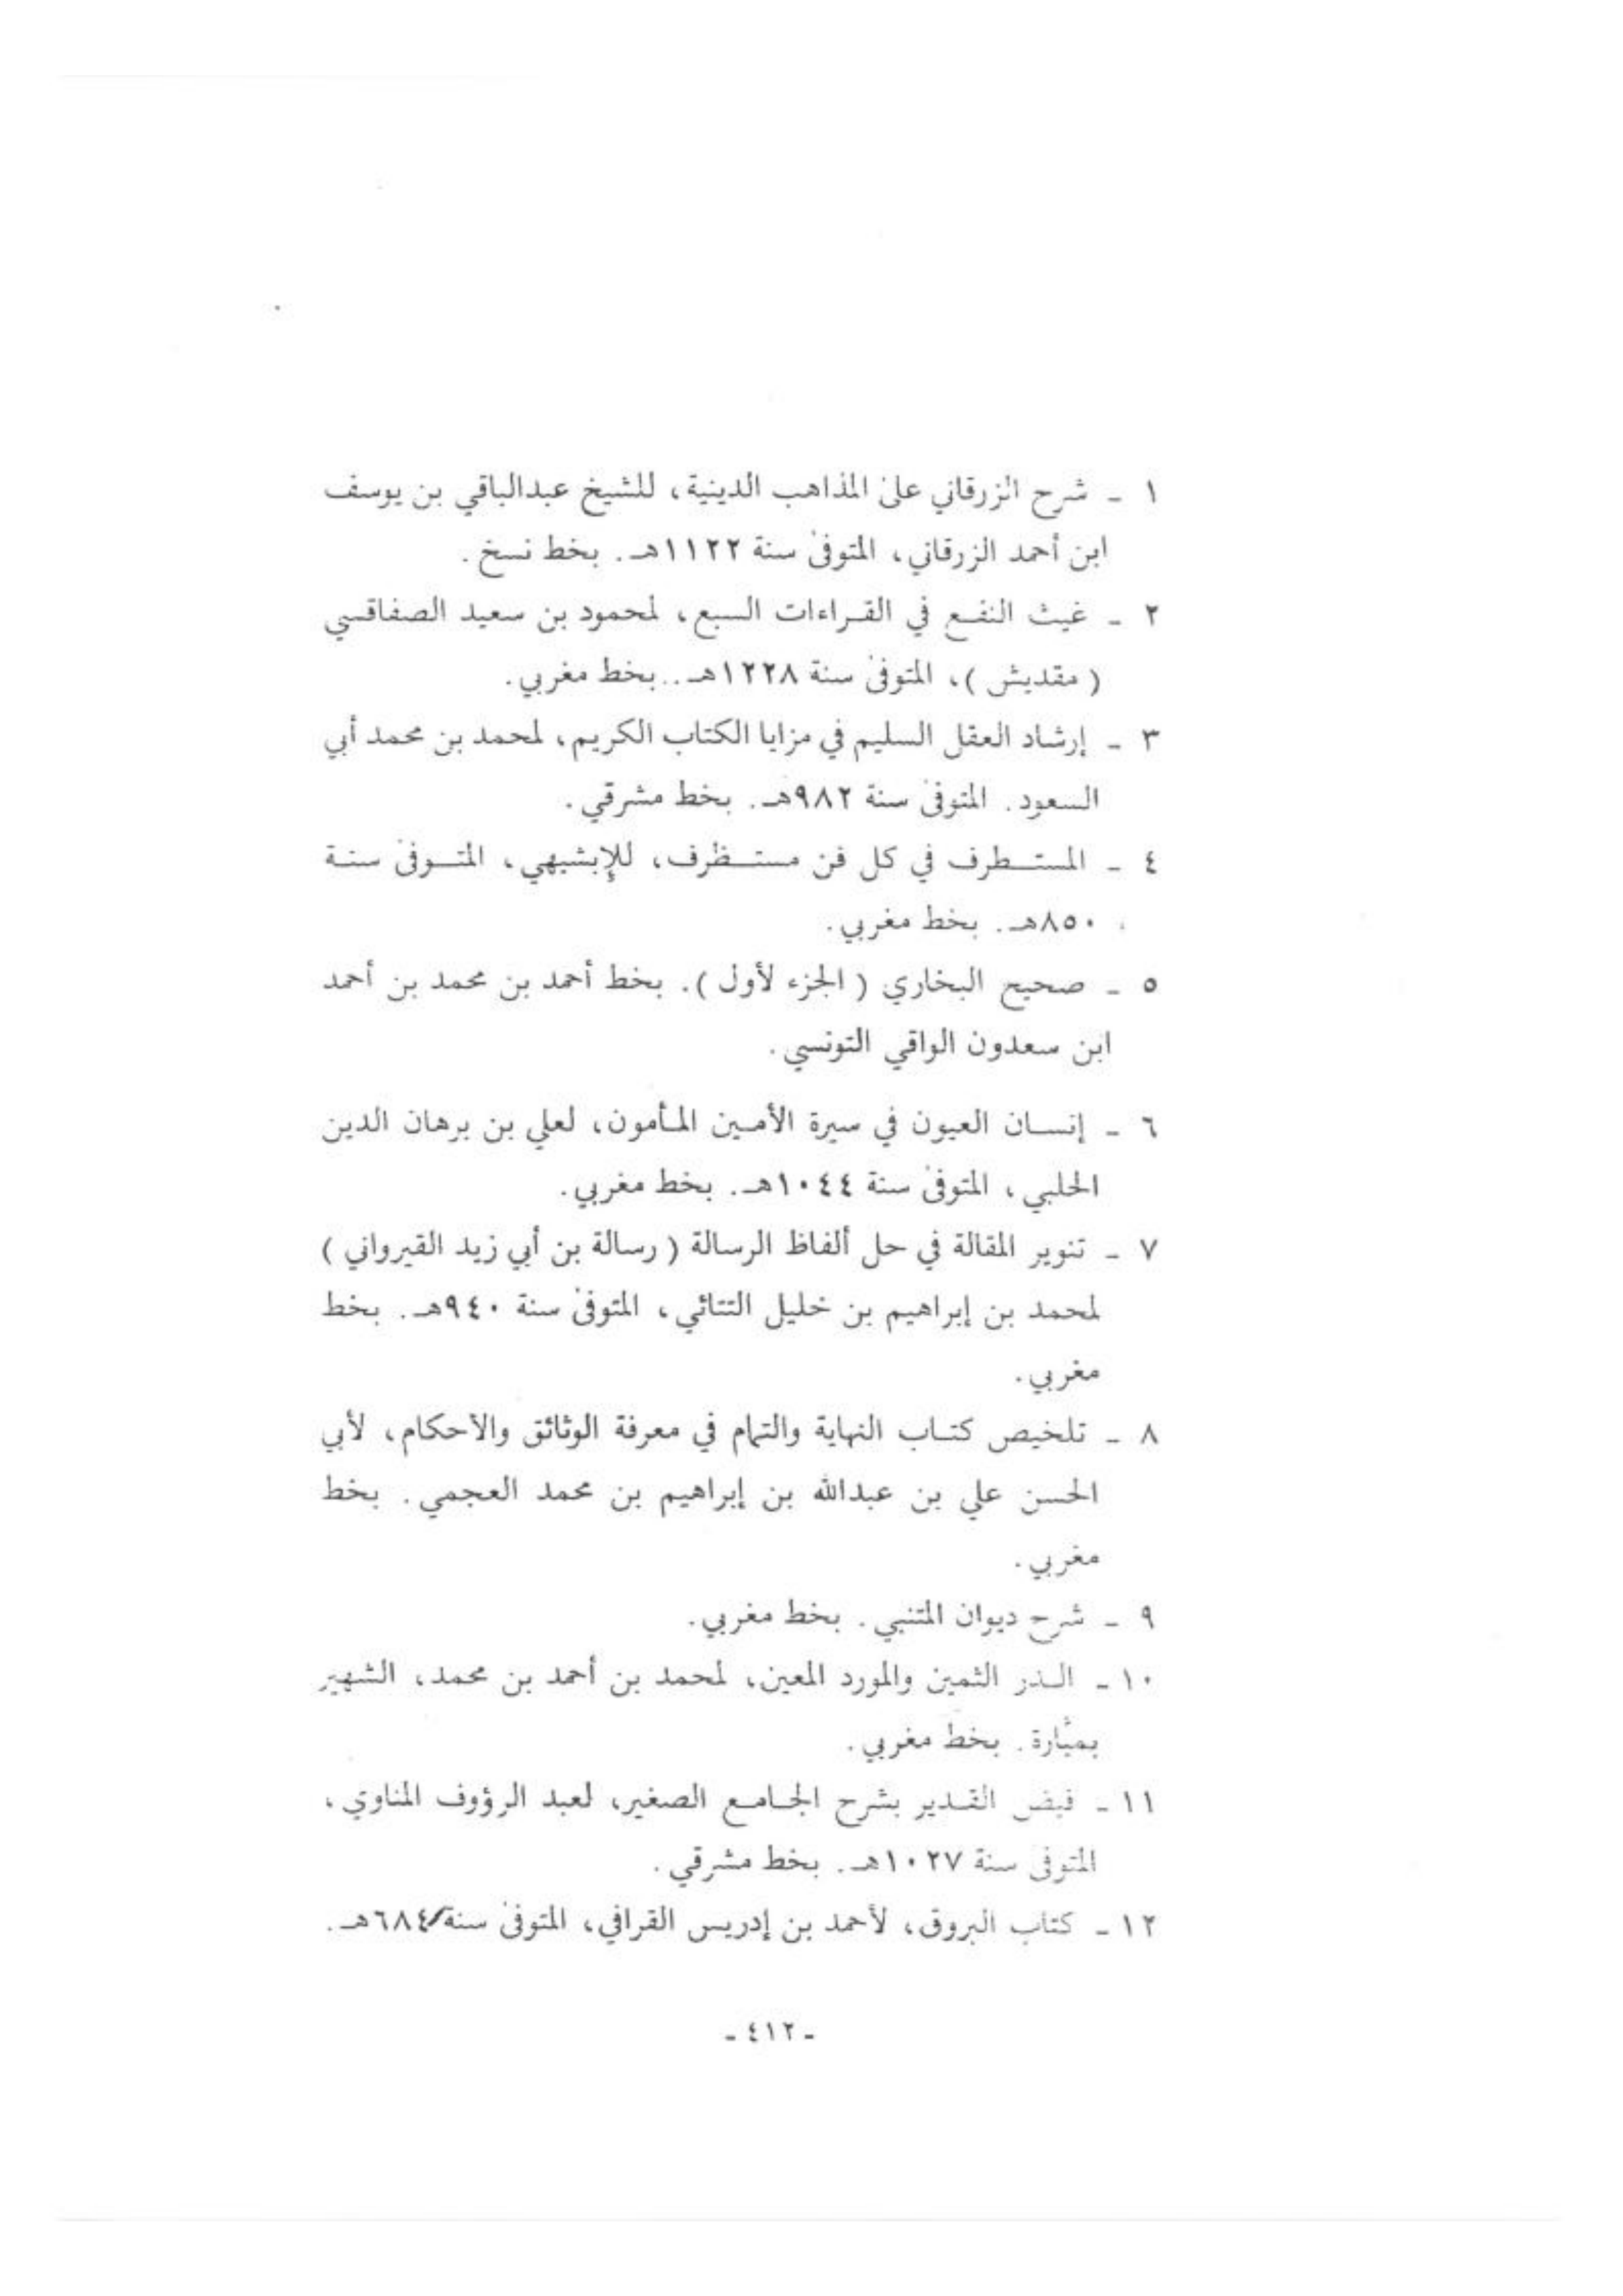 ١ - شرح الزرقاني على المذاهب الدينية، للشيخ عبدالباقي بن يوسف
ابن أحمد الزرقاني، المتوفى سنة ١١٢٢هـ. بخط نسخ.
٢ - غيث النفع في القراءات السبع، لمحمود بن سعيد الصفاقسي
( مقديش )، المتوفى سنة ١٢٢٨هـ.. بخط مغربي.
٣ - إرشاد العقل السليم في مزايا الكتاب الكريم، لمحمد بن محمد أبي
السعود. المتوفى سنة ٩٨٢هـ. بخط مشرقي.
٤ - المستطرف في كل فن مستظرف، للإبشيهي، المتوفى سنة
٨٥٠هـ. بخط مغربي.
٥ - صحيح البخاري ( الجزء لأول ). بخط أحمد بن محمد بن أحمد
ابن سعدون الواقي التونسي.
٦ - إنسان العيون في سيرة الأمين المأمون، لعلي بن برهان الدين
الحلبي، المتوفى سنة ١٠٤٤هـ. بخط مغربي.
٧ - تنوير المقالة في حل ألفاظ الرسالة ( رسالة بن أبي زيد القيرواني )
لمحمد بن إبراهيم بن خليل التتائي، المتوفى سنة ٩٤٠هـ. بخط
مغربي.
٨ - تلخيص كتاب النهاية والتمام في معرفة الوثائق والأحكام، لأبي
الحسن علي بن عبدالله بن إبراهيم بن محمد العجمي. بخط
مغربي.
٩ - شرح ديوان المتنبي. بخط مغربي.
١٠ - الدر الثمين والمورد المعين، لمحمد بن أحمد بن محمد، الشهير
بميّارة. بخط مغربي.
١١ - فيض القدير بشرح الجامع الصغير، لعبد الرؤوف المناوي،
المتوفى سنة ١٠٢٧هـ. بخط مشرقي.
١٢ - كتاب البروق، لأحمد بن إدريس القرافي، المتوفى سنة ٦٨٤هـ.
- ٤١٢ -